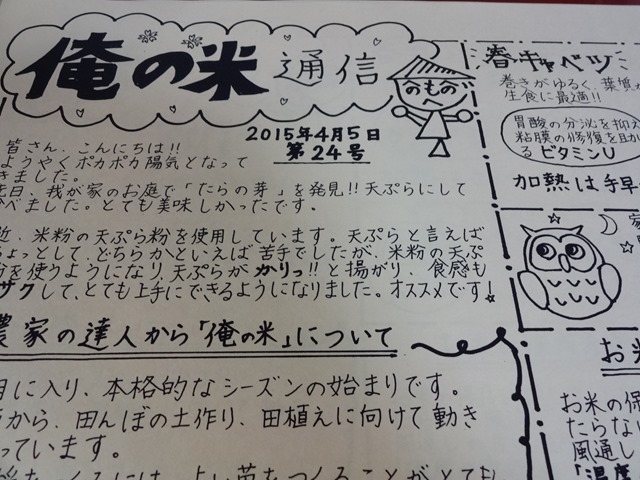 俺の米通信
2015年4月5日
第24号
皆さん、こんにちは!!
ようやくポカポカ陽気となって
きました。
日、我が家のお庭で「たらの芽」を発見!!天ぷらにして
べました。とても美味しかったです。
近、米粉の天ぷら粉を使用しています。天ぷらと言えば
ちょっとして、どちらかといえば苦手でしたが、米粉の天ぷ
を使うようになり、天ぷらがかりっ!!と揚がり、食感も
ザクして、とても上手にできるようになりました。オススメです!
農家の達人から「俺の米」について
月に入り、本格的なシーズンの始まりです。
から、田んぼの土作り、田植えに向けて動き
っています。
よい苗をつくることがとても
春キャベツ
巻きがゆるく、葉質
生食に最適!!
胃酸の分泌を抑え
粘膜の修復を助け
るビタミンU
加熱は手早
お米
お米の保
たらない
風通し
「温度